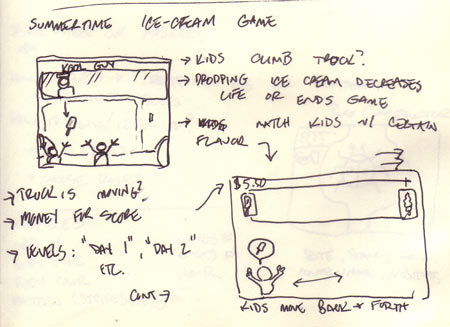 SUMMERTIME ICE-CREAM GAME
KOOL GUY
→ KIDS CLIMB TRUCK?
→ DROPPING ICE CREAM DECREASES
LIFE OR ENDS GAME
→ KIDS MATCH KIDS W/ CERTAIN
FLAVOR
→ TRUCK IS MOVING?
→ MONEY FOR SCORE
→ LEVELS: "DAY 1", "DAY 2"
ETC.
CONT →
$5.50
+
KIDS MOVE BACK + FORTH